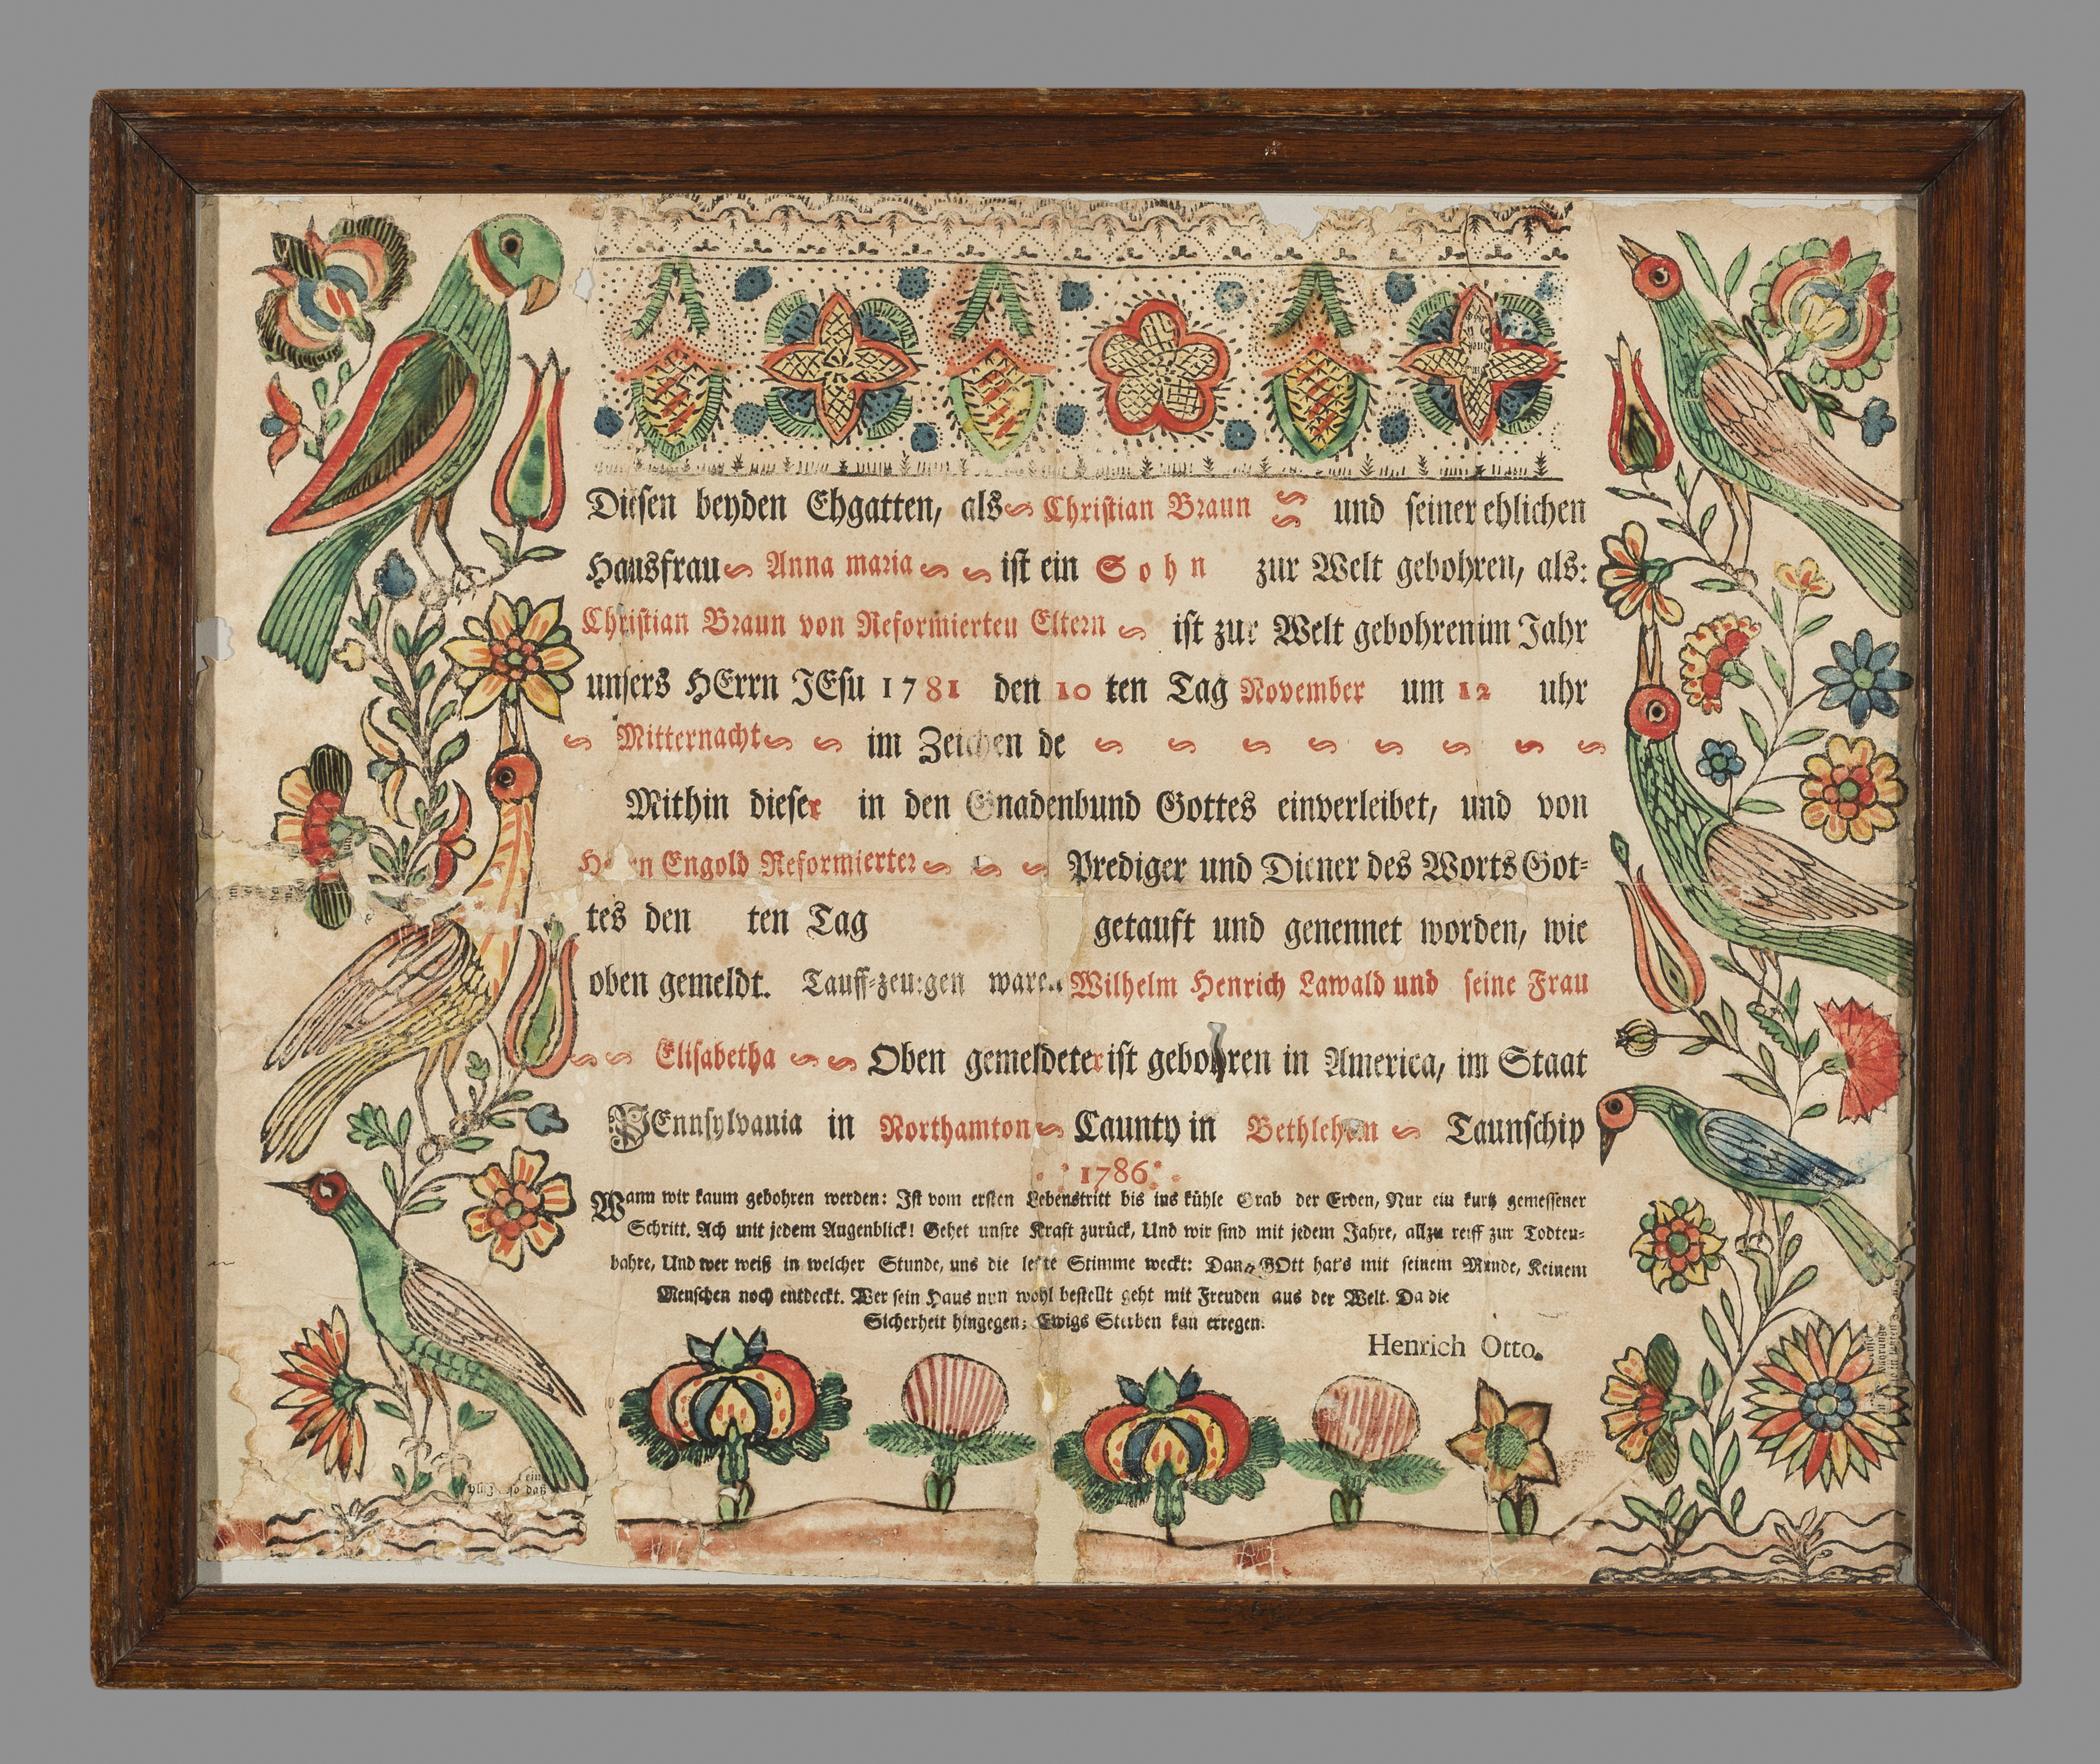 Diesen beyden Ehgatten, als Christian Braun und seiner ehlichen
Hausfrau Anna maria ist ein Sohn zur Welt gebohren, als:
Christian Braun von Reformierten Eltern ist zur Welt gebohren im Jahr
unsers HErrn JEsu 1781 den 10 ten Tag November um 12 uhr
Mitternacht im Zeichen de
Mithin dieser in den Gnadenbund Gottes einverleibet, und von
Engold Reformierter Prediger und Diener des Worts Got-
tes den ten Tag getauft und genennet worden, wie
oben gemeldt. Tauff-zeugen waren Wilhelm Henrich Lawald und seine Frau
Elisabetha Oben gemeldeter ist gebohren in America, im Staat
PEnnsylvania in Northamton Caunty in Bethlehem Taunschip
1786
Wann wir kaum gebohren werden: Ist vom ersten Lebenstritt bis ins kühle Grab der Erden, Nur ein kurtz gemessener
Schritt. Ach mit jedem Augenblick! Gehet unsre Kraft zurück, Und wir sind mit jedem Jahre, allzu reiff zur Todten-
bahre, Und wer weiß in welcher Stunde, uns die letzte Stimme weckt: Dann GOtt hat's mit seinem Munde, Keinem
Menschen noch entdeckt. Wer sein Haus nun wohl bestellt geht mit Freuden aus der Welt. Da die
Sicherheit hingegen; Ewigs Sterben kan erregen.
Henrich Otto.